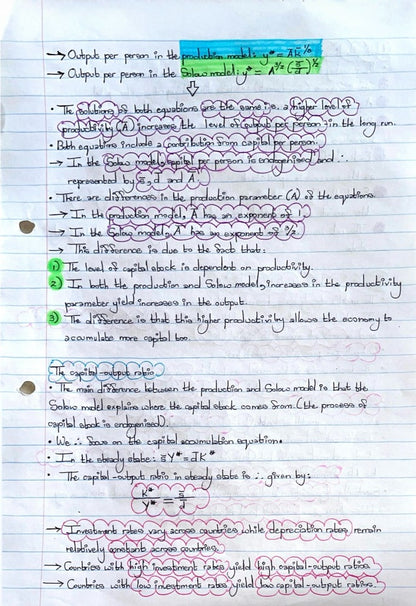 → Output per person in the production model: y* = Āk̄^⅓
→ Output per person in the Solow model: y* = Ā^3/2 (s̄/d̄)^½
⇩
• The solutions of both equations are the same i.e. a higher level of
productivity (Ā) increases the level of output per person in the long run.
• Both equations include a contribution from capital per person.
→ In the Solow model, capital per person is endogenised and ∴
represented by s̄, d̄ and Ā.
• There are differences in the production parameter (Ā) of the equations.
→ In the production model, Ā has an exponent of 1.
→ In the Solow model, Ā has an exponent of 3/2.
→ This difference is due to the fact that:
1) The level of capital stock is dependent on productivity.
2) In both the production and Solow model, increases in the productivity
parameter yield increases in the output.
3) The difference is that this higher productivity allows the economy to
accumulate more capital too.
The capital-output ratio
• The main difference between the production and Solow model is that the
Solow model explains where the capital stock comes from. (the process of
capital stock is endogenised).
• We ∴ focus on the capital accumulation equation.
• In the steady state: s̄Y* = d̄K*
• The capital-output ratio in steady state is ∴ given by:
K*/Y* = s̄/d̄
→ Investment rates vary across countries while depreciation rates remain
relatively constant across countries.
→ Countries with high investment rates yield high capital-output ratios.
→ Countries with low investment rates yield low capital-output ratios.